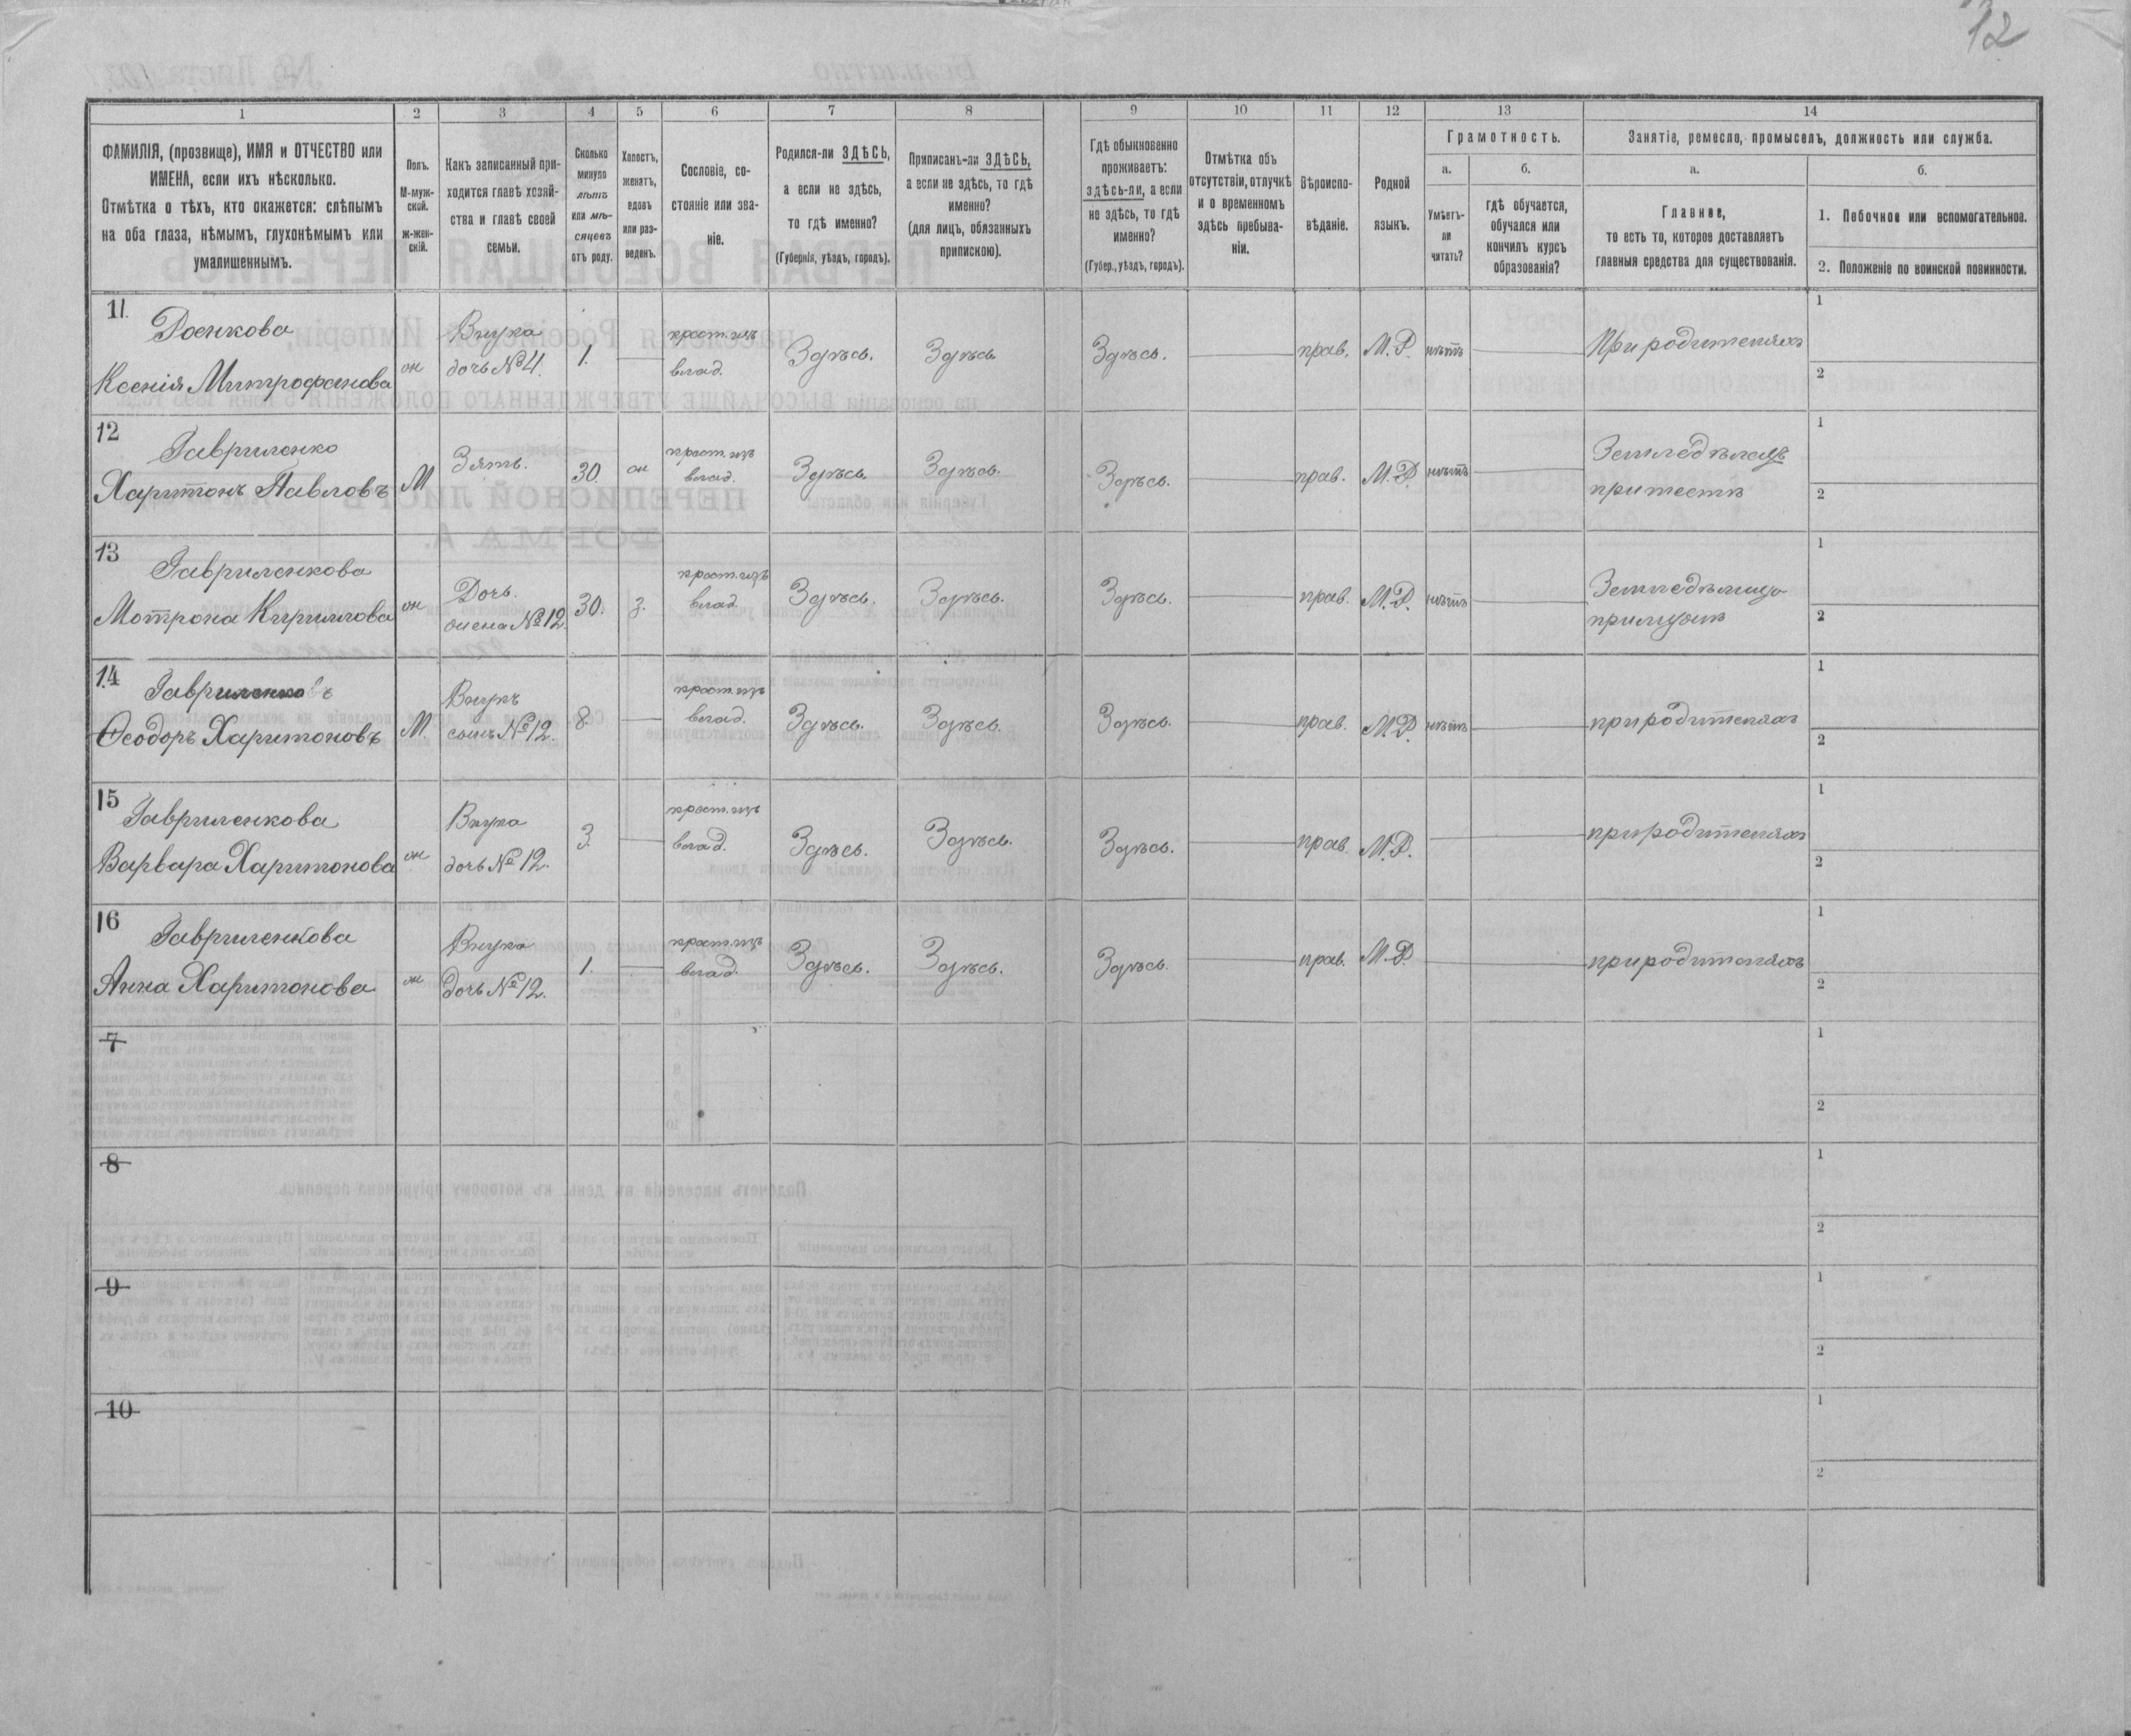 12
1 2 3 4 5 6 7 8 9 10 11 12 13 14
ФАМИЛІЯ, (прозвище), ИМЯ и ОТЧЕСТВО или
ИМЕНА, если ихъ нѣсколько.
Отмѣтка о тѣхъ, кто окажется: слѣпымъ
на оба глаза, нѣмымъ, глухонѣмымъ или
умалишеннымъ.
Полъ.
М-муж-
ской.
Ж-жен-
скій.
Какъ записанный при-
ходится главѣ хозяй-
ства и главѣ своей
семьи.
Сколько
минуло
лѣтъ
или мѣ-
сяцевъ
отъ роду.
Холостъ,
женатъ,
вдовъ
или раз-
веденъ.
Сословіе, со-
стояніе или зва-
ніе.
Родился-ли ЗДѢСЬ,
а если не здѣсь,
то гдѣ именно?
(Губернія, уѣздъ, городъ).
Приписанъ-ли ЗДѢСЬ,
а если не здѣсь, то гдѣ
именно?
(для лицъ, обязанныхъ
припискою).
Гдѣ обыкновенно
проживаетъ:
здѣсь-ли, а если
не здѣсь, то гдѣ
именно?
(Губер., уѣздъ, городъ).
Отмѣтка объ
отсутствіи, отлучкѣ
и о временномъ
здѣсь пребыва-
ніи.
Вѣроиспо-
вѣданіе.
Родной
языкъ.
Грамотность.
а.
Умѣетъ-
ли
читать?
б.
гдѣ обучается,
обучался или
кончилъ курсъ
образованія?
Занятіе, ремесло, промыселъ, должность или служба.
а.
Главное,
то есть то, которое доставляетъ
главныя средства для существованія.
б.
1. Побочное или вспомогательное.
2. Положеніе по воинской повинности.
11.
Доенкова
Ксенія Митрофанова
ж
Внука
дочь №4.
1.
крест. изъ
влад.
Здѣсь.
Здѣсь
Здѣсь.
прав.
М.Р.
нѣтъ
При родителяхъ
1
2
12
Гавриленко
Харитонъ Павловъ
М
Зять.
30.
ж
крест. изъ
влад.
Здѣсь.
Здѣсь.
Здѣсь.
прав.
М.Р.
нѣтъ
Земледѣлецъ
при тестѣ
1
2
13
Гавриленкова
Мотрона Кириллова
ж
Дочь.
жена №12.
30.
з.
крест. изъ
влад.
Здѣсь.
Здѣсь.
Здѣсь.
прав.
М.Р.
нѣтъ
Земледѣлица
при мужѣ
1
2
14
Гавриленковъ
Ѳеодоръ Харитоновъ
М.
Внукъ
сынъ №12.
8.
крест. изъ
влад.
Здѣсь.
Здѣсь.
Здѣсь.
прав.
М.Р.
нѣтъ
при родителяхъ
1
2
15
Гавриленкова
Варвара Харитонова
ж
Внука
дочь №12.
3.
крест. изъ
влад.
Здѣсь.
Здѣсь.
Здѣсь.
прав.
М.Р.
при родителяхъ
1
2
16
Гавриленкова
Анна Харитонова
ж
Внука
Дочь №12.
1.
крест. изъ
влад.
Здѣсь.
Здѣсь.
Здѣсь.
прав.
М.Р.
при родителяхъ
1
2
7
1
2
8
1
2
9
1
2
10
1
2